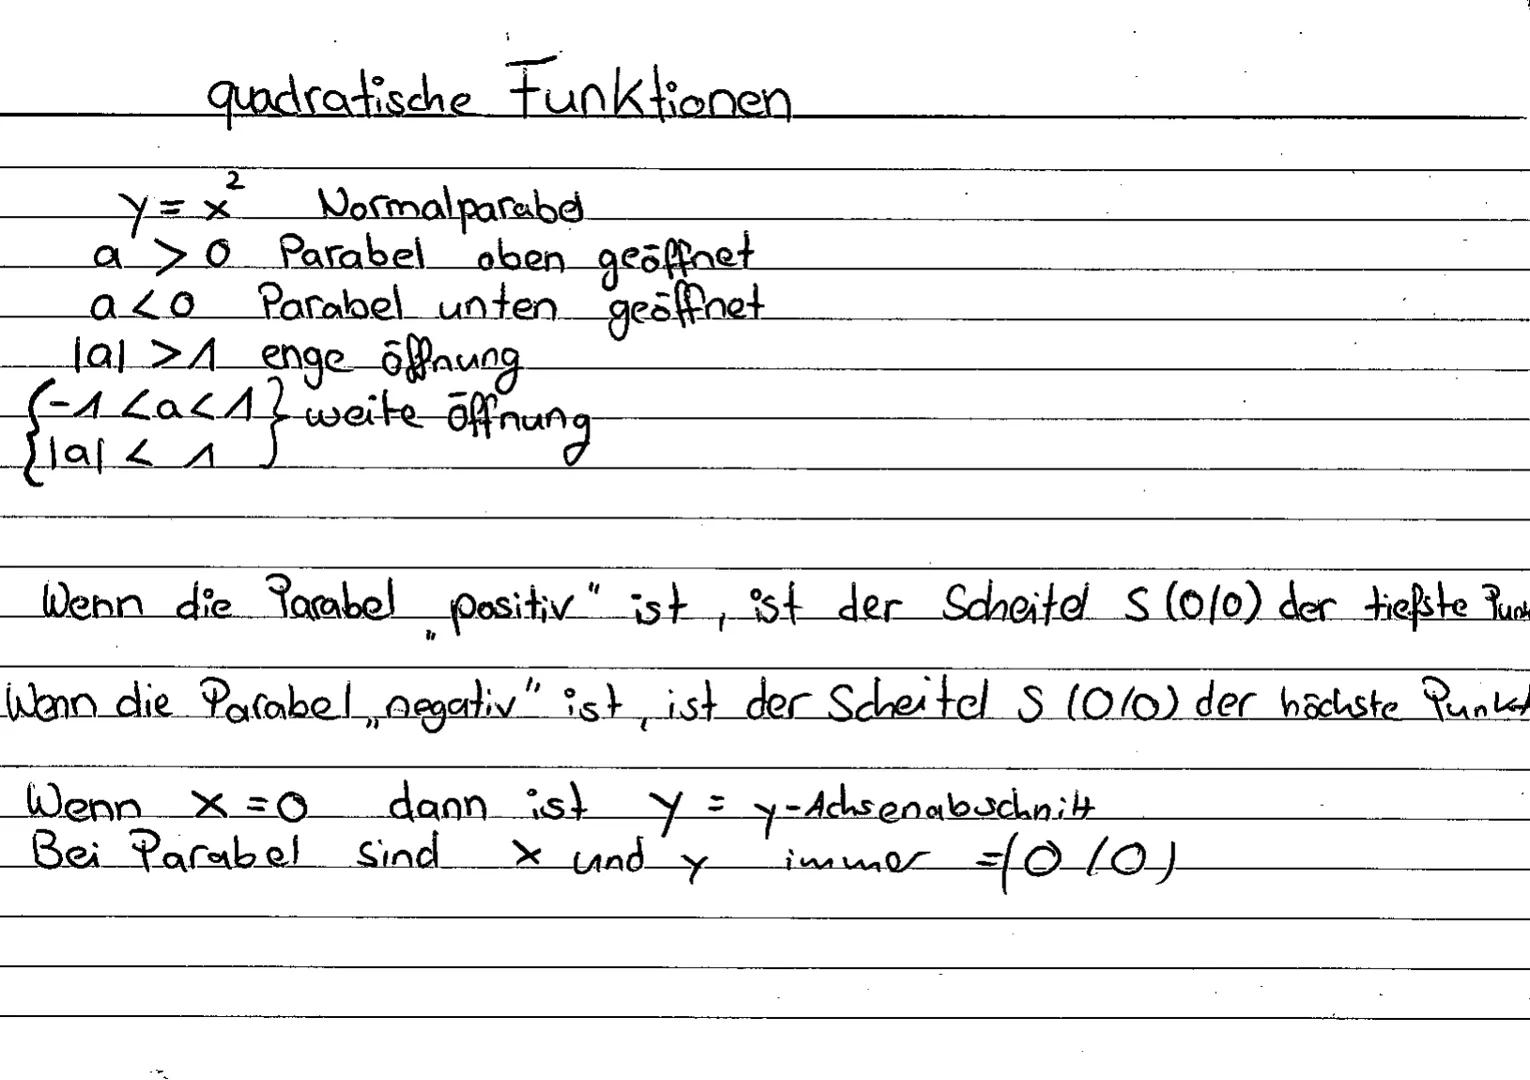 quadratische Funktionen
y = x² Normalparabel
a > 0 Parabel oben geöffnet
a < 0 Parabel unten geöffnet
|a| > 1 enge öffnung
{-1 < a < 1} weite öffnung
{|a| < 1}
Wenn die Parabel „positiv" ist, ist der Scheitel S (0/0) der tiefste Punk
Wenn die Parabel „negativ" ist, ist der Scheitel S (0/0) der höchste Punkt
Wenn x = 0 dann ist y = y-Achsenabschnitt
Bei Parabel sind x und y immer = (0/0)